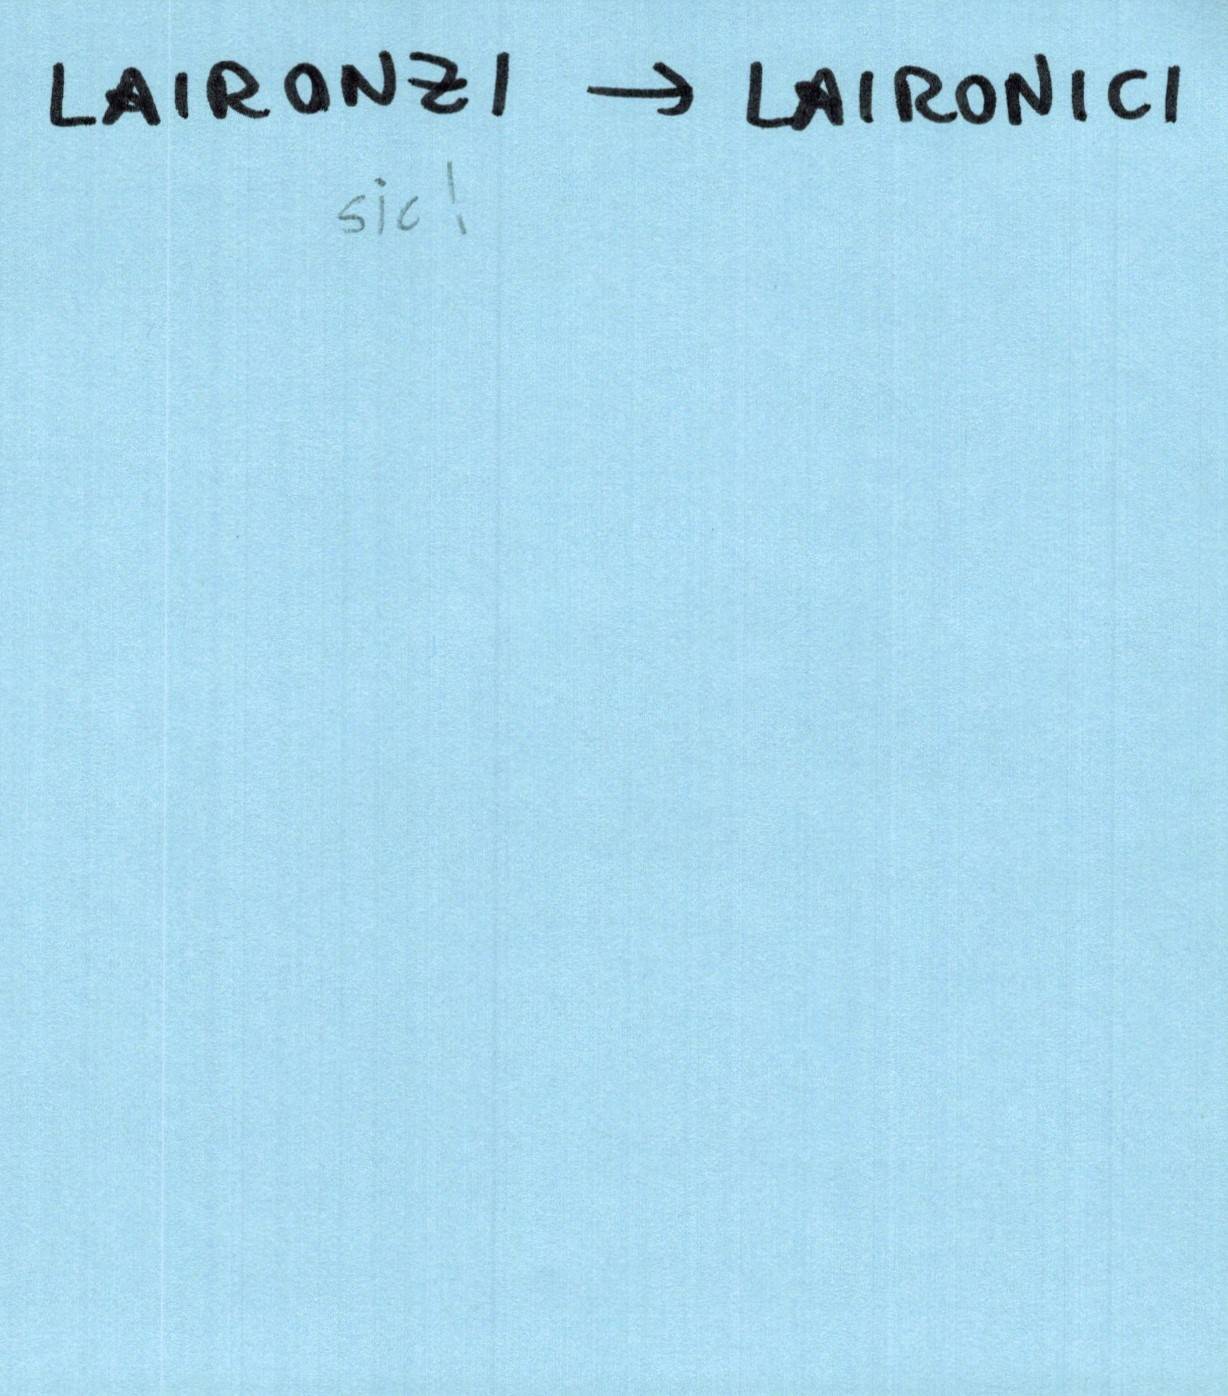 LAIRONZI → LAIRONICI
sic!